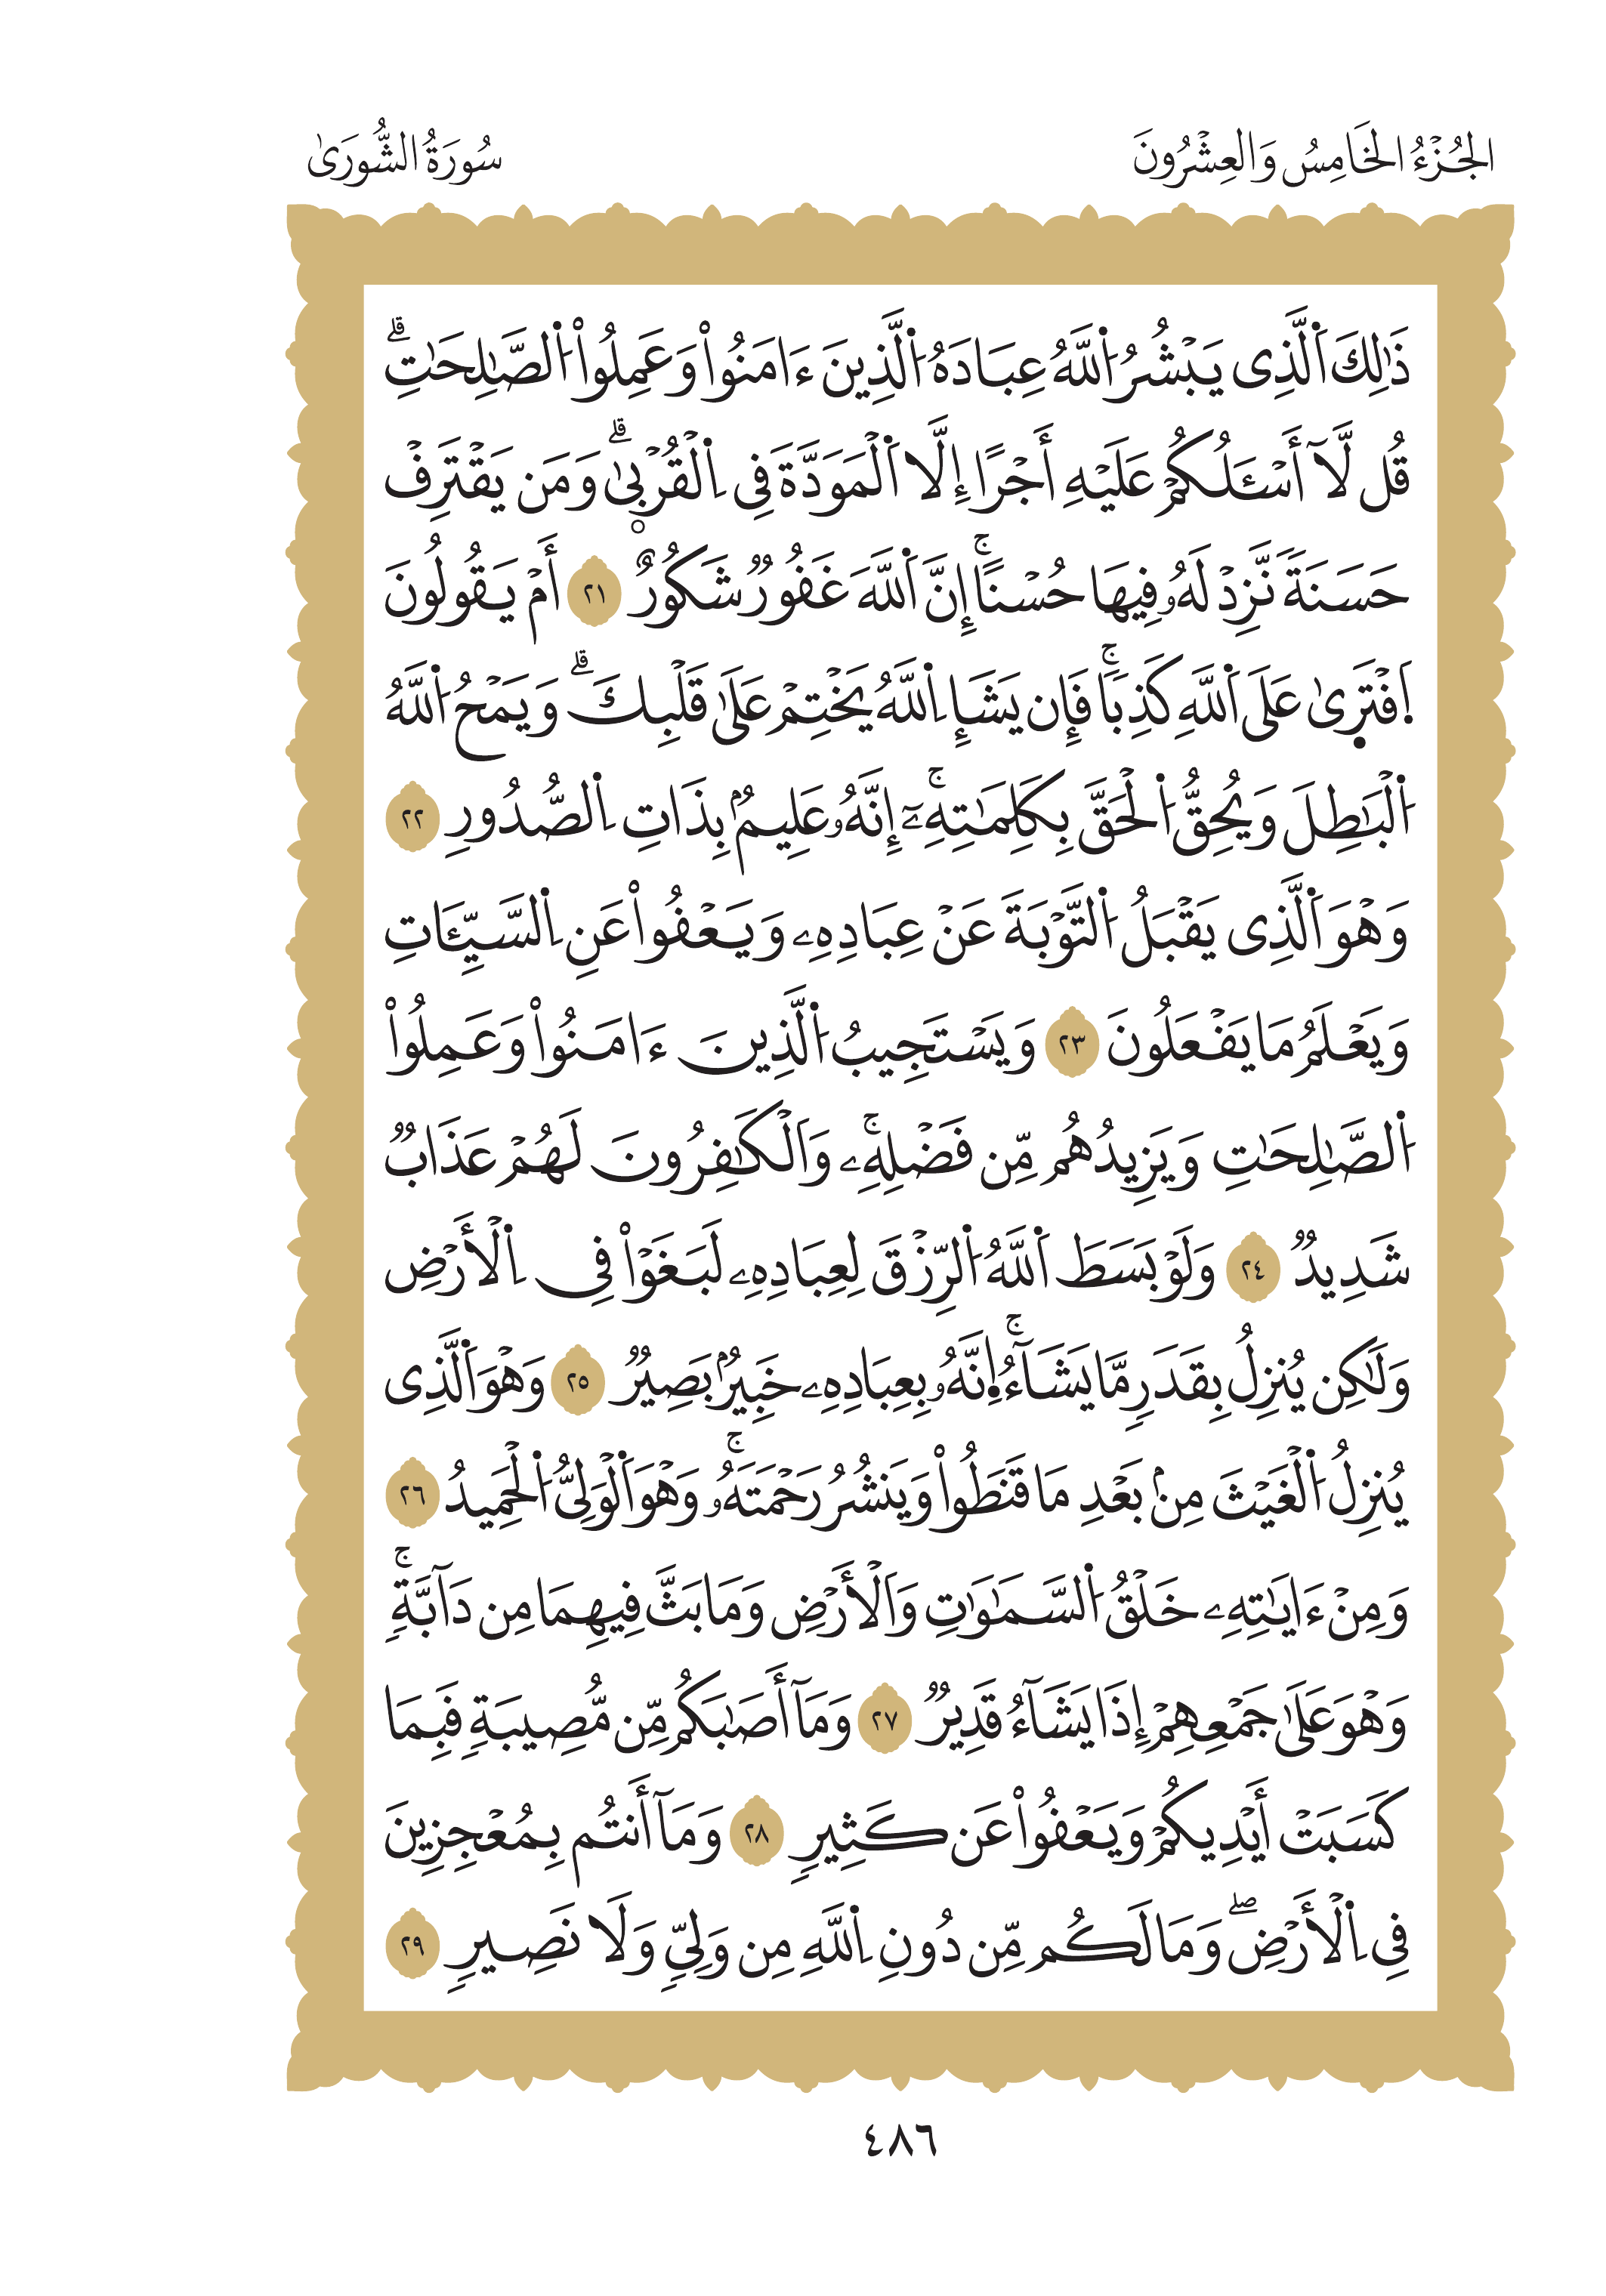 الجُزْءُ الخَامِسُ وَالعِشْرُونَ
سُورَةُ الشُّورَىٰ
ذَٰلِكَ اَ۬لَّذِى يَبْشُرُ اُ۬للَّهُ عِبَادَهُ اُ۬لَّذِينَ ءَامَنُواْ وَعَمِلُواْ اُ۬لصَّٰلِحَٰتِۗ
قُل لَّآ أَسْـَٔلُكُمْ عَلَيْهِ أَجْرًا إِلَّا اَ۬لْمَوَدَّةَ فِى اِ۬لْقُرْبِىٰۗ وَمَن يَقْتَرِفْ
حَسَنَةً نَّزِدْ لَهُۥ فِيهَا حُسْنًاۚ إِنَّ اَ۬للَّهَ غَفُورٌ شَكُورٌ ٢١ أَمْ يَقُولُونَ
اَ۪فْتَرِىٰ عَلَى اَ۬للَّهِ كَذِبًاۚ فَإِن يَشَإِ اِ۬للَّهُ يَخْتِمْ عَلَىٰ قَلْبِكَۗ وَيَمْحُ اُ۬للَّهُ
اُ۬لْبَٰطِلَ وَيُحِقُّ اُ۬لْحَقَّ بِكَلِمَٰتِهِۦٓۚ إِنَّهُۥ عَلِيمُۢ بِذَاتِ اِ۬لصُّدُورِ ٢٢
وَهْوَ اَ۬لَّذِى يَقْبَلُ اُ۬لتَّوْبَةَ عَنْ عِبَادِهِۦ وَيَعْفُواْ عَنِ اِ۬لسَّيِّـَٔاتِ
وَيَعْلَمُ مَا يَفْعَلُونَ ٢٣ وَيَسْتَجِيبُ اُ۬لَّذِينَ ءَامَنُواْ وَعَمِلُواْ
اُ۬لصَّٰلِحَٰتِ وَيَزِيدُهُم مِّن فَضْلِهِۦۚ وَاَلْكَٰفِرُونَ لَهُمْ عَذَابٌ
شَدِيدٌ ٢٤ وَلَوْ بَسَطَ اَ۬للَّهُ اُ۬لرِّزْقَ لِعِبَادِهِۦ لَبَغَوْاْ فِى اِ۬لْأَرْضِ
وَلَٰكِن يُنزِلُ بِقَدَرٍ مَّا يَشَآءُۚ اِ۪نَّهُۥ بِعِبَادِهِۦ خَبِيرُۢ بَصِيرٌ ٢٥ وَهْوَ اَ۬لَّذِى
يُنزِلُ اُ۬لْغَيْثَ مِنۢ بَعْدِ مَا قَنَطُواْ وَيَنشُرُ رَحْمَتَهُۥۚ وَهْوَ اَ۬لْوَلِىُّ اُ۬لْحَمِيدُ ٢٦
وَمِنْ ءَايَٰتِهِۦ خَلْقُ اُ۬لسَّمَٰوَٰتِ وَاَلْأَرْضِ وَمَا بَثَّ فِيهِمَا مِن دَآبَّةٍۚ
وَهْوَ عَلَىٰ جَمْعِهِمْ إِذَا يَشَآءُ قَدِيرٌ ٢٧ وَمَآ أَصَٰبَكُم مِّن مُّصِيبَةٍ فَبِمَا
كَسَبَتْ أَيْدِيكُمْ وَيَعْفُواْ عَن كَثِيرٍ ٢٨ وَمَآ أَنتُم بِمُعْجِزِينَ
فِى اِ۬لْأَرْضِۖ وَمَا لَكُم مِّن دُونِ اِ۬للَّهِ مِن وَلِىٍّ وَلَا نَصِيرٍ ٢٩
٤٨٦